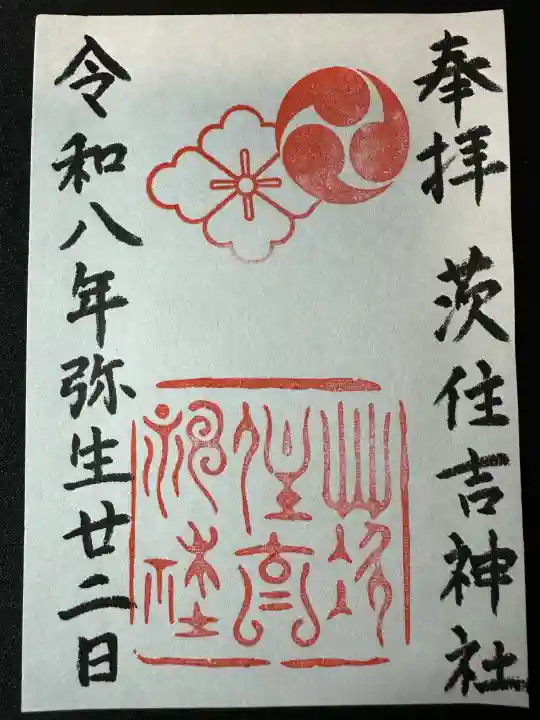 奉拝 茨住吉神社
令和八年弥生廿二日